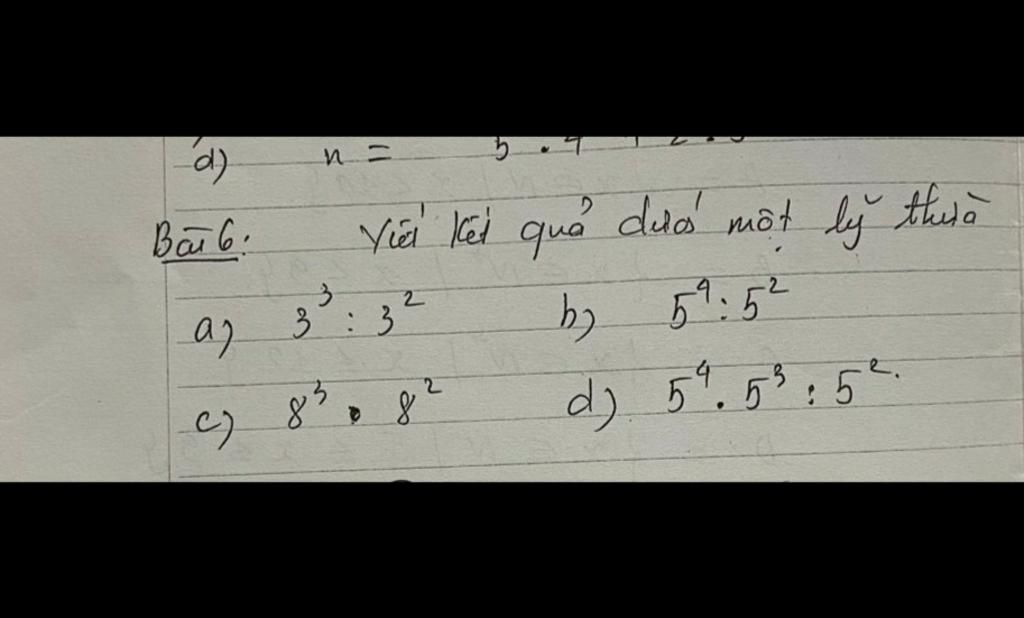 d) n =
Bài 6: Viết kết quả dưới một lỹ thừa
a) 3³ : 3² b) 5⁴ : 5²
c) 8³ . 8² d) 5⁴ . 5³ : 5².